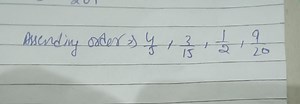 Ascending order ⇒ 4/5, 2/15, 1/2, 9/20